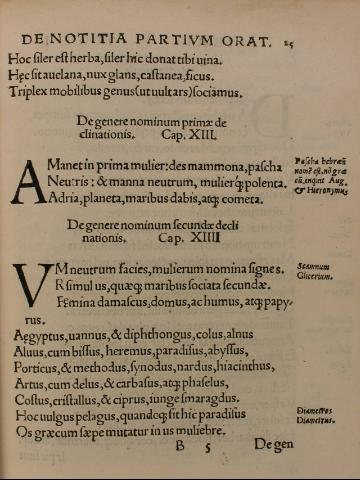 DE NOTITIA PARTIVM ORAT. 25
Hoc siler est herba, siler hic donat tibi uina.
Hęc sit auelana, nux glans, castanea, ficus.
Triplex mobilibus genus (ut uultars) sociamus.
De genere nominum primæ de
clinationis. Cap. XIII.
AManet in prima mulier: des mammona, pascha
Neutris: & manna neutrum, mulierq; polenta.
Adria, planeta, maribus dabis, atq; cometa.
Pascha hebræũ
nomẽ est, nõ græ
cũ, inquit Aug.
& Hieronymus
De genere nominum secundæ decli
nationis. Cap. XIIII
VM neutrum facies, mulierum nomina signes.
R simul us, quæq; maribus sociata secundæ.
Fęmina damascus, domus, ac humus, atq; papy-
rus.
Scamnum
Glicerium.
Aęgyptus, uannus, & diphthongus, colus, alnus
Aluus, cum bissus, heremus, paradisus, abyssus,
Porticus, & methodus, synodus, nardus, hiacinthus,
Artus, cum delus, & carbasus, atq; phaselus,
Costus, cristallus, & ciprus, iunge smaragdus.
Hoc uulgus pelagus, quandoq; sit hic paradisus
Os græcum sæpe mutatur in us muliebre.
Diametros
Diametrus.
B 5 De gen